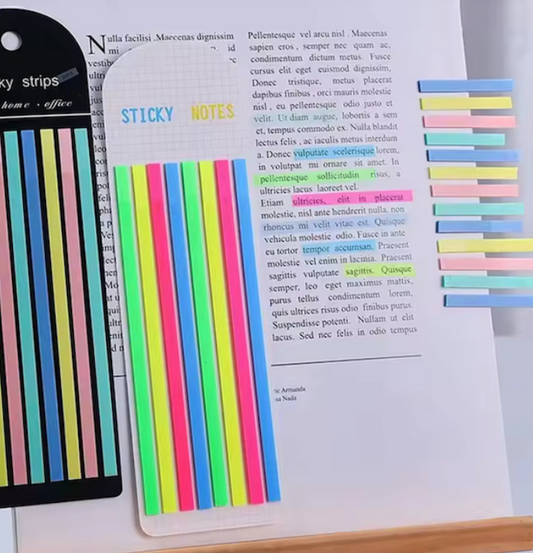 ky strips
home · office
STICKY NOTES
Nulla facilisi .Maecenas dignissim
mi
id
Pellentesque vel arcu nisl . Maecenas
sapien eros , semper nec quam ac,
condimentum dictum metus. Fusce
cursus elit eget euismod dignissim,
Donec tristique, metus placerat
dapibus finibus , orci mauris molestie
nisl , eu pellentesque odio justo et
velit. Ut diam augue, lobortis a sem
et, tempus commodo ex. Nulla blandit
lectus felis , ac iaculis metus interdum
a. Donec vulputate scelerisque lorem,
in volutpat mi ornare sit amet. In
pellentesque sollicitudin risus, a
ultricies lacus laoreet vel.
Etiam ultricies, elit in placerat
molestie, nisl ante hendrerit nulla, non
rhoncus mi velit vitae est. Quisque
vehicula molestie odio. Fusce in ante
eu tortor tempor accumsan. Praesent
molestie vel enim in lacinia. Praesent
sagittis vulputate sagittis. Quisque
semper, leo eget maximus mattis,
purus tellus condimentum lorem,
quis ultrices risus odio finibus risus.
Suspendisse potenti. Nullam ut elit
lacus. Sed nec felis in odio tempus
Armanda
Nada